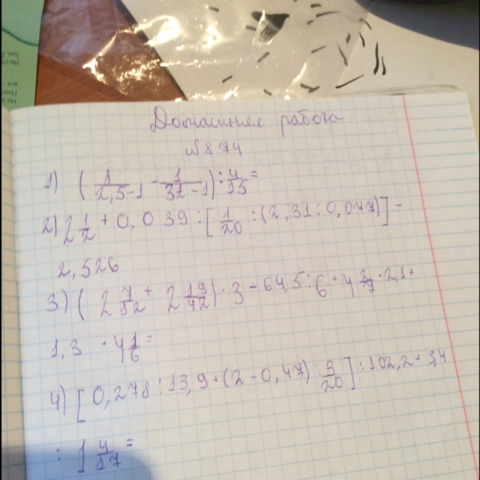 Домашнее работа
№874
1) (1/2,5-1 - 1/3 1/2 -1) : 4/35 =
2) 2 1/2 + 0,039 : [1/20 : (2,31 : 0,077)] -
2,526
3) (2 7/32 + 2 19/42) · 3 - 64,5 : 6 + 4 2/7 · 2,1 +
1,3 · 4 1/6 =
4) [0,278 : 13,9 + (2 - 0,47) : 3/20] : 102,2 + 3,4
: 1 4/27 =